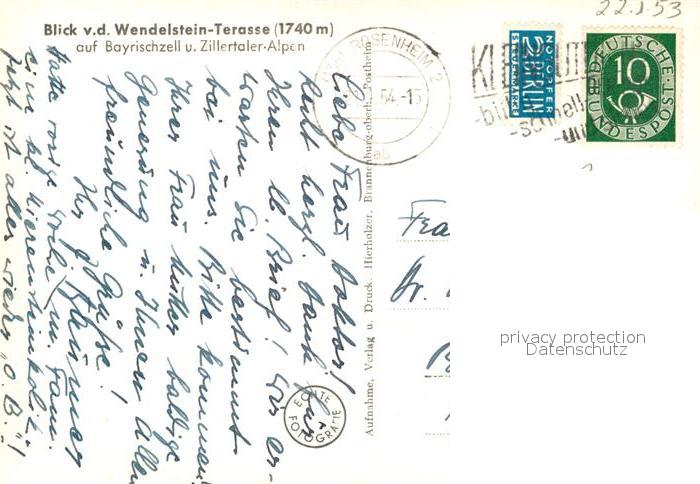 22.1.53
Blick v.d. Wendelstein-Terasse (1740 m)
auf Bayrischzell u. Zillertaler-Alpen
ROSENHEIM 2
54.-15
ab
NOTOPFER
2 BERLIN
STEUERMARKE
DEUTSCHE
BUNDESPOST
10
Liebe Frau Doktor!
Recht herzl. Dank für
Ihren lb. Brief!
warten Sie bestimmt
bei uns. Bitte kommen
Ihrer Frau Mutter baldige
Genesung u. Ihnen allen
freundliche Grüsse!
Ihr
Hatte vorige Woche m. Fam.
eine kl. Nierensteinkolik.
Jetzt ist alles wieder "O.B."!
Aufnahme, Verlag u. Druck. Hierholzer, Brannenburg-oberb., Postheim
ECHTE
FOTOGRAFIE
Dr.
privacy protection
Datenschutz